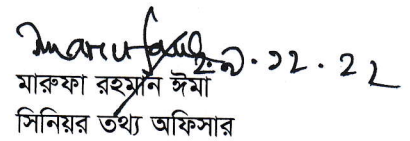 ২৯.১২.২২
মারুফা রহমান ঈমা
সিনিয়র তথ্য অফিসার